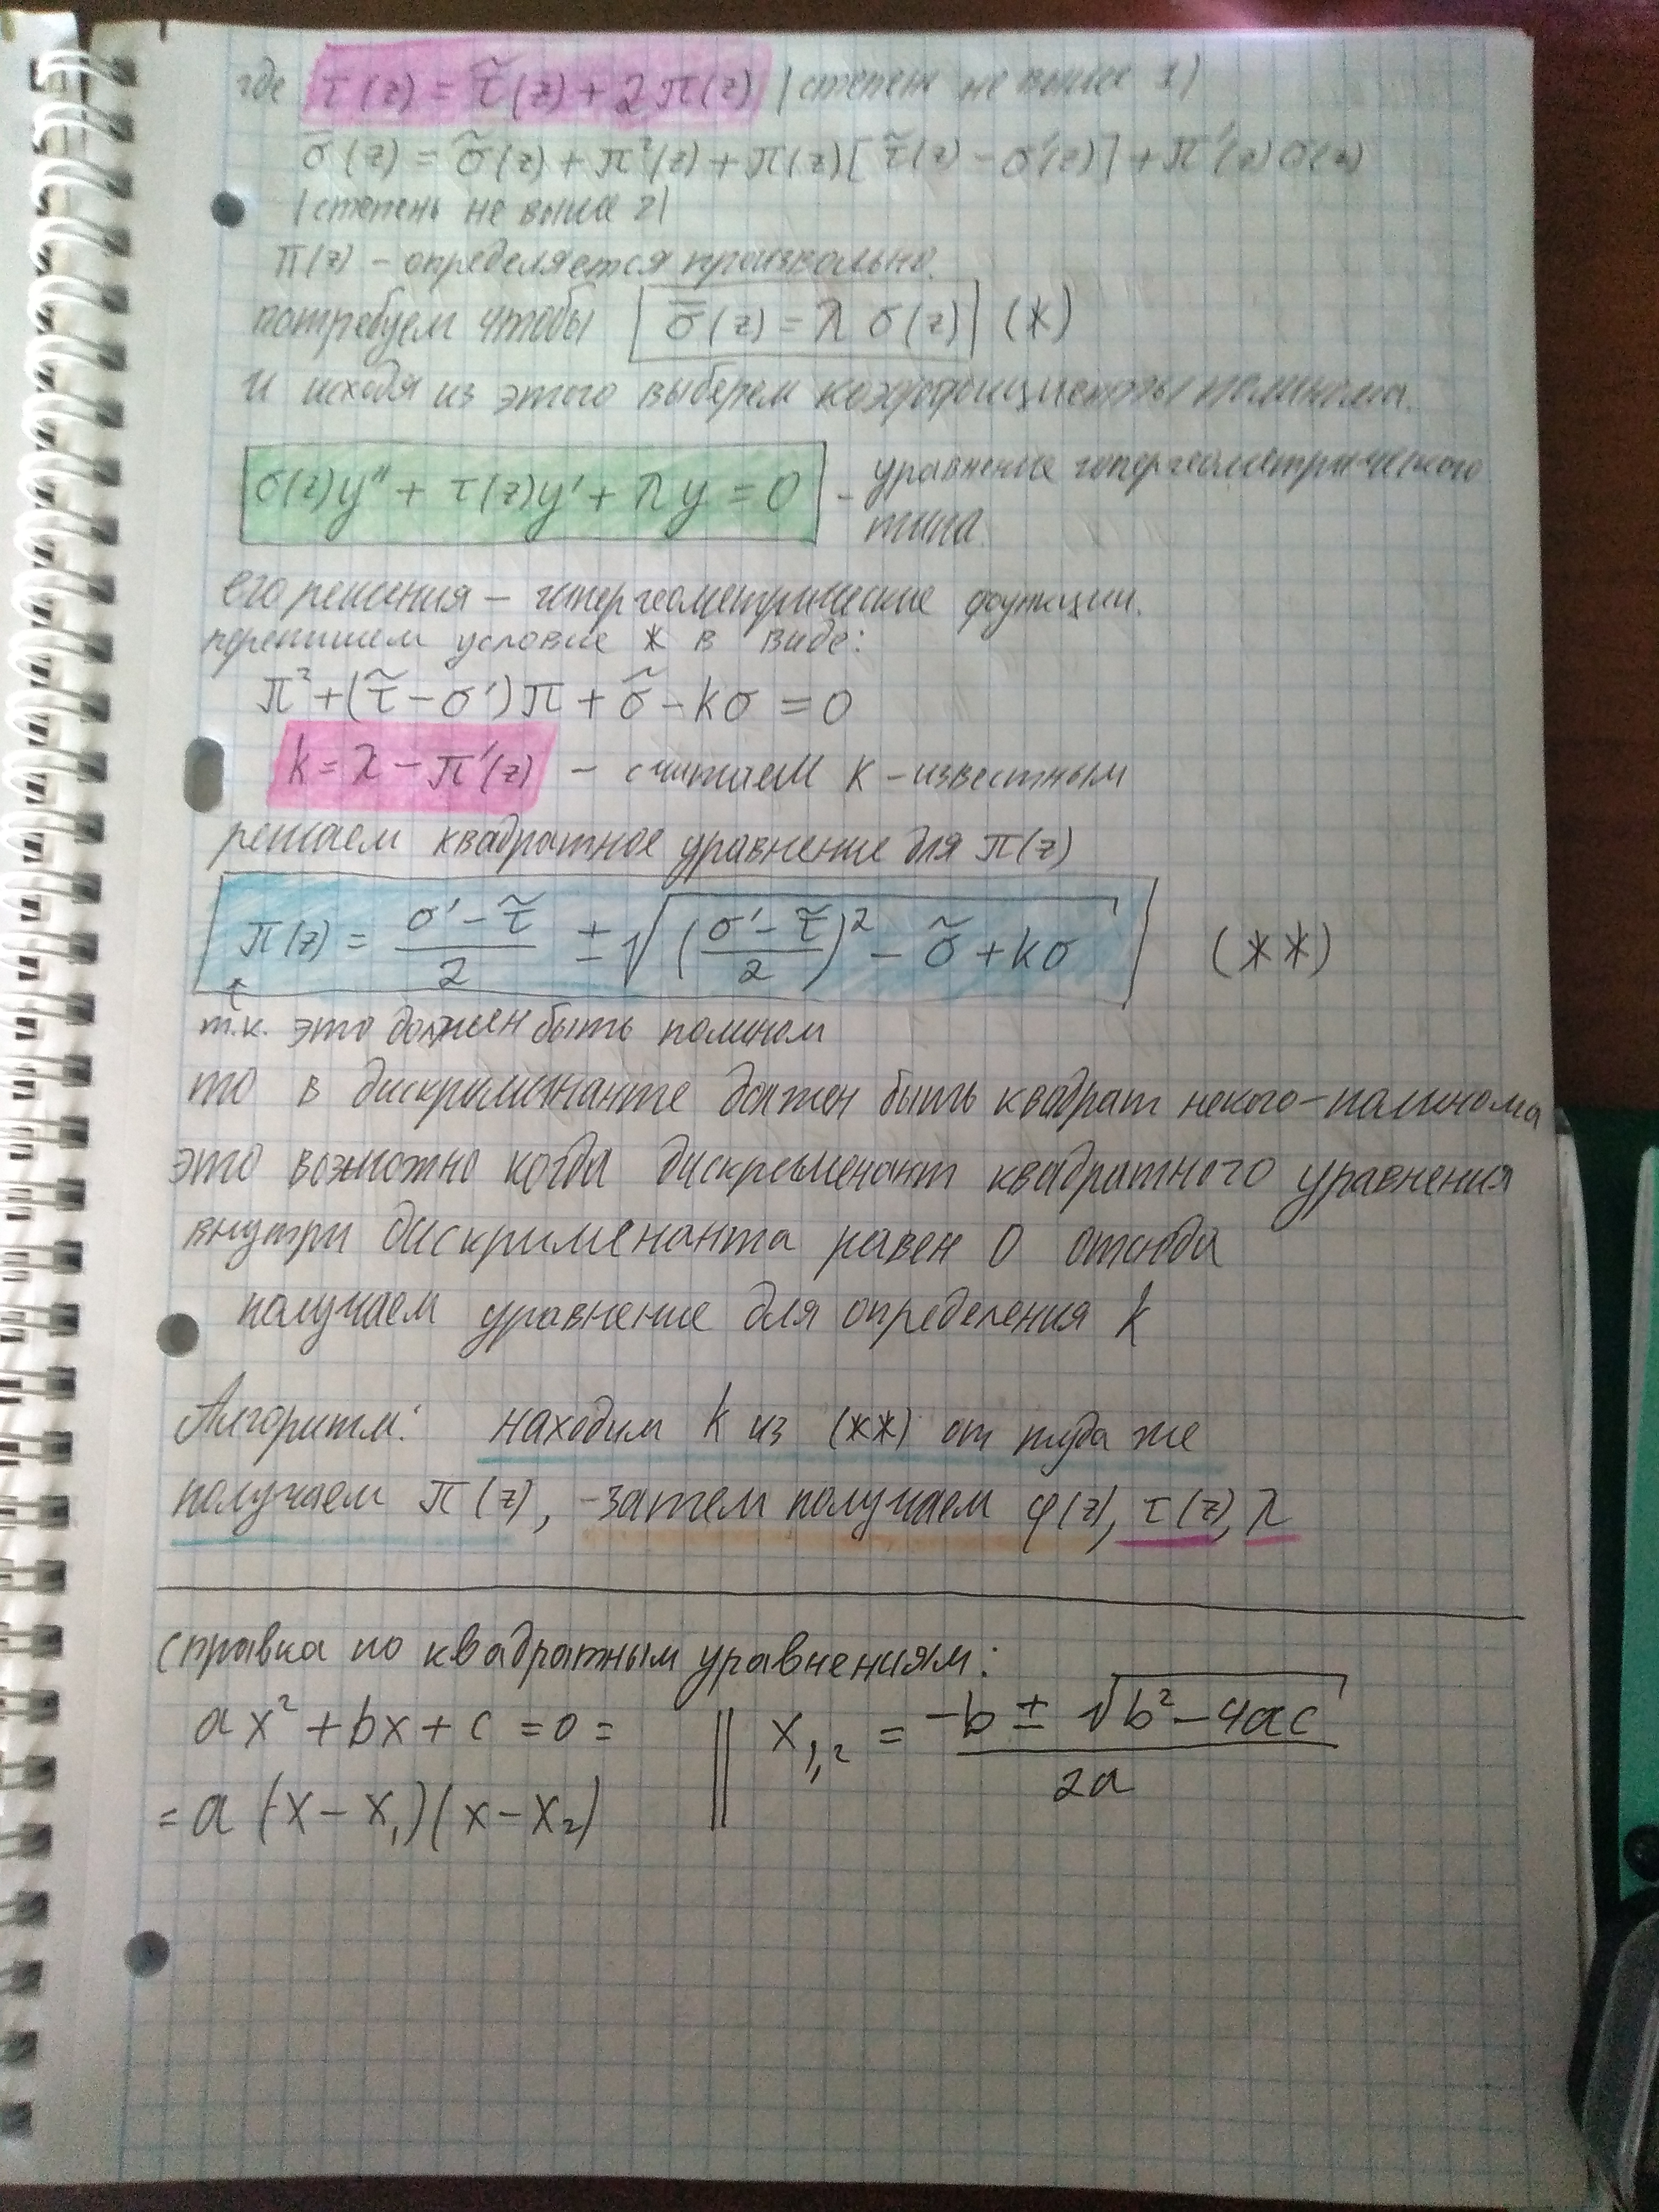 где τ(z) = τ̃(z) + 2π(z) (степень не выше 1)
σ̄(z) = σ̃(z) + π²(z) + π(z)[τ̃(z) − σ'(z)] + π'(z)σ(z)
(степень не выше 2)
π(z) – определяется произвольно.
потребуем чтобы σ̄(z) = λ σ(z) (*)
и исходя из этого выберем коэффициенты полинома.
σ(z)y'' + τ(z)y' + λy = 0 – уравнение гипергеометрического
типа.
его решения – гипергеометрические функции.
перепишем условие * в виде:
π² + (τ̃ − σ')π + σ̃ − kσ = 0
k = λ − π'(z) – считаем k – известным
решаем квадратное уравнение для π(z)
π(z) = (σ' − τ̃)/2 ± √((σ' − τ̃)/2)² − σ̃ + kσ (**)
т.к. это должен быть полином
то в дискриминанте должен быть квадрат некого-полинома
это возможно когда дискременант квадратного уравнения
внутри дискрименанта равен 0 отсюда
получаем уравнение для определения k
Алгоритм: находим k из (**) от туда же
получаем π(z), -затем получаем φ(z), τ(z), λ
справка по квадратным уравнениям:
ax² + bx + c = 0 = || x₁,₂ = (−b ± √b² − 4ac)/2a
= a (x − x₁)(x − x₂)